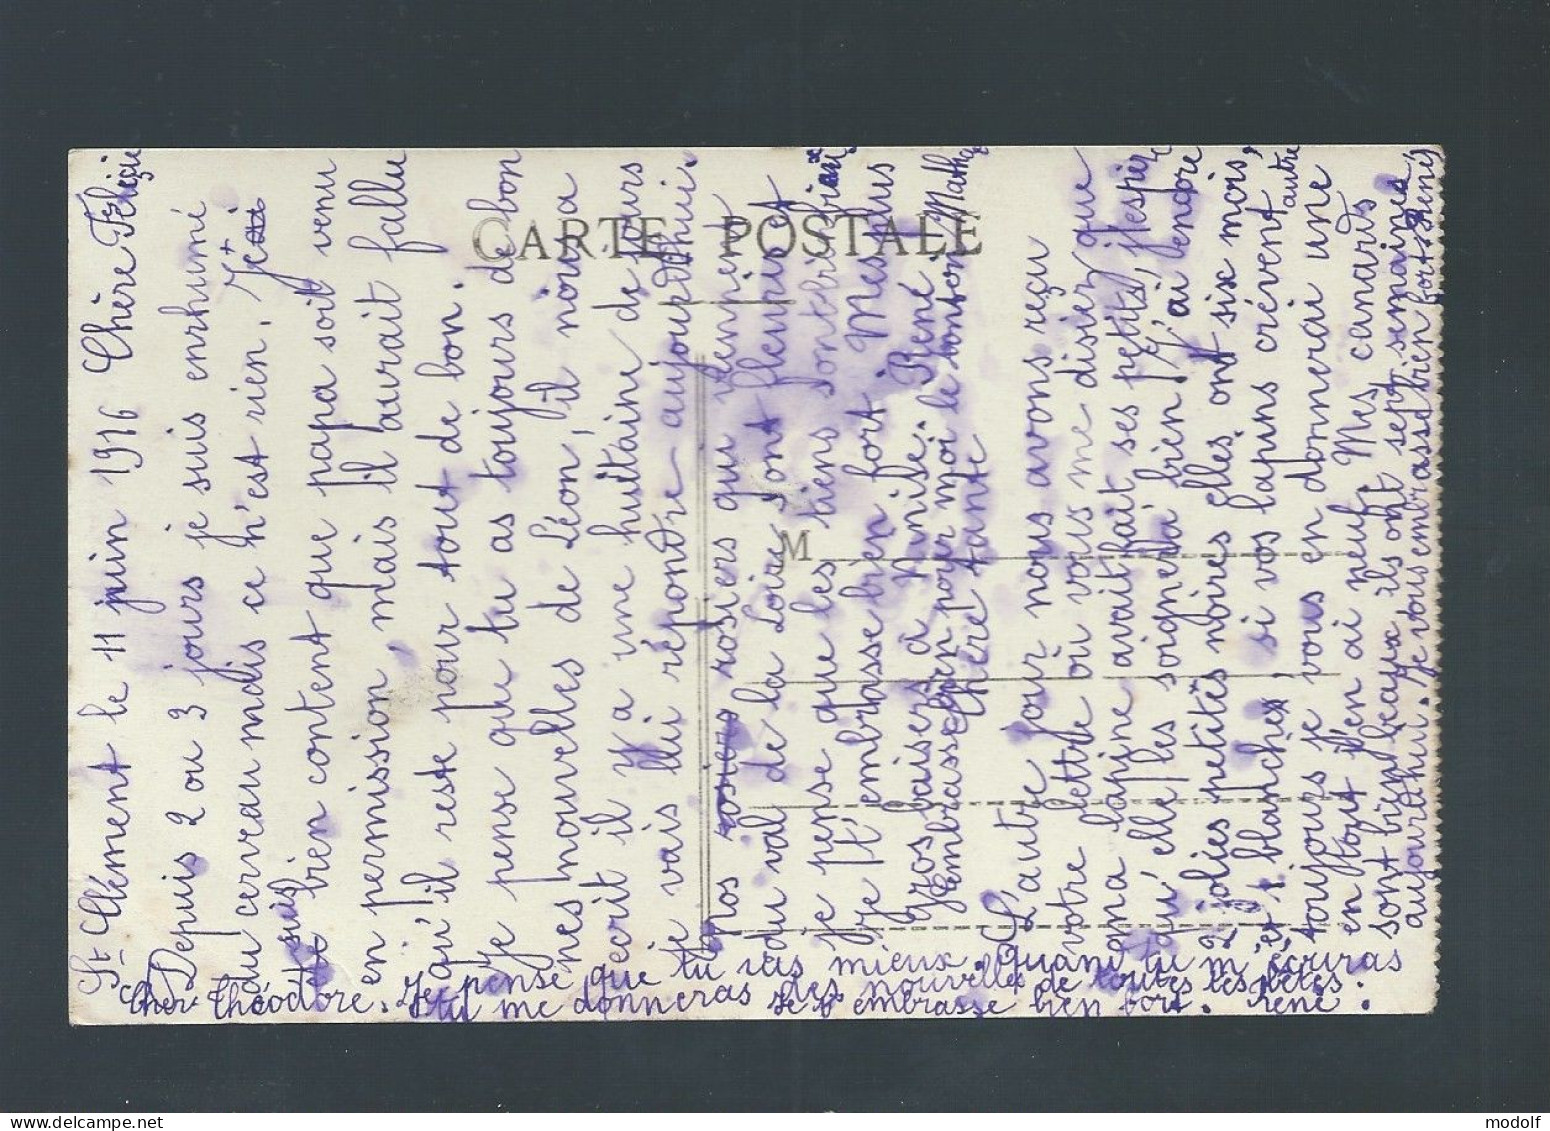 St Clément le 11 juin 1916 Chère Félicie
Depuis 2 ou 3 jours je suis enrhumé
du cerveau mais ce n'est rien. Je
suis
bien content que papa soit venu
en permission, mais il aurait fallu
qu'il reste pour tout de bon.
je pense que tu as toujours de bon
nes nouvelles de Léon, il nous a
écrit il y a une huitaine de jours
je vais lui répondre aujourd'hui.
Nos rosiers rosiers qui venaient
du val de la Loire sont fleuris et
je pense que les tiens sont bien
je t'embrasse bien fort. Mes plus
gros baisers à Denise. René
Embrasse bien pour moi le tonton Math
Chère tante
L'autre jour nous avons reçu
votre lettre où vous me disiez que
ma lapine avait fait ses petits, j'espère
qu'elle les soignera bien. J'ai encore
2 jolies petites noires elles ont six mois,
et 1 blanche, si vos lapins crèvent
autre
toujours je vous en donnerai une
en stoy j'en ai neuf. Mes canards
sont bien beaux ils ont sept semaines
aujourd'hui. Je vous embrasse bien fort. René
Cher Théodore. Je pense que tu vas mieux. Quand tu m'écriras
tu me donneras des nouvelles de toutes les bêtes.
Je t'embrasse bien fort. rené.
CARTE POSTALE
M
modolf